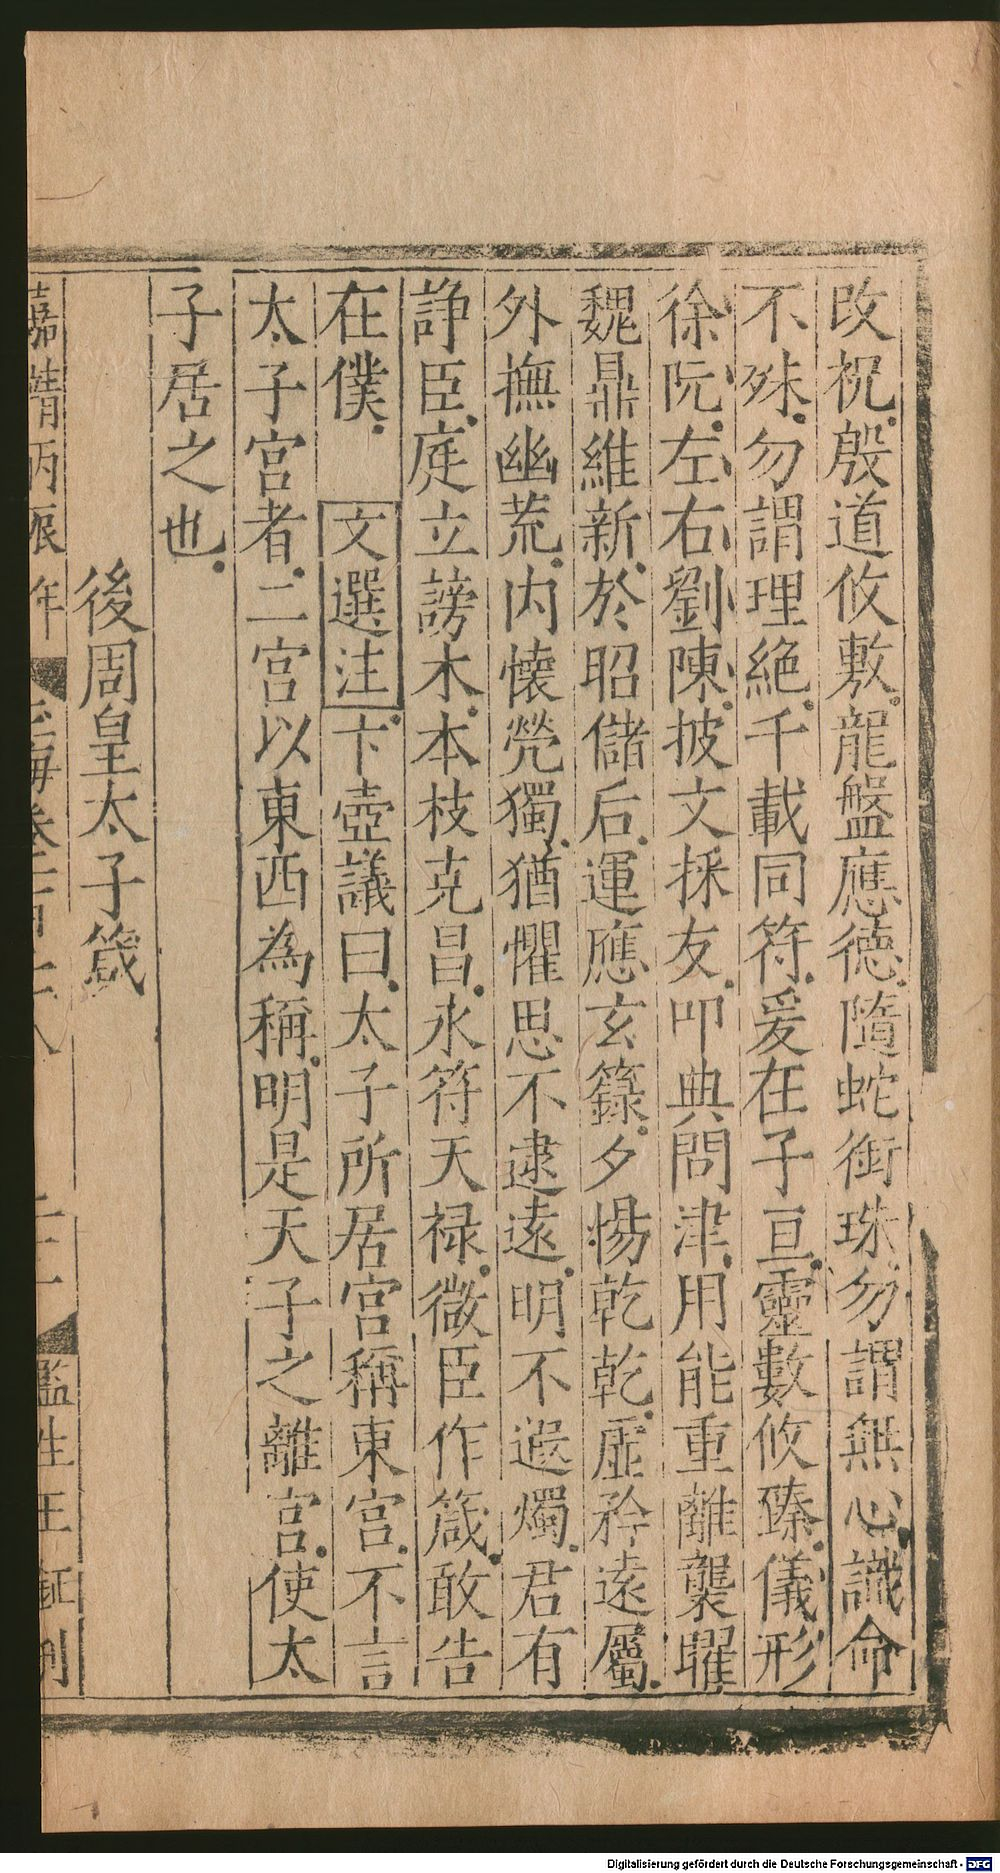 改祝殷道攸敷龍盤應德隨蛇銜珠勿謂無心識命
不殊勿謂理絕千載同符爰在子亘靈數攸臻儀形
徐阮左右劉陳披文採友叩典問津用能重離襲曜
魏鼎維新於昭儲后運應玄籙夕惕乾乾虛矜遠屬
外撫幽荒内懷煢獨猶懼思不逮遠明不遐燭君有
諍臣庭立謗木本枝克昌永符天祿微臣作箴敢告
在僕 文選注 卞壺議曰太子所居宮稱東宮不言
太子宮者二宮以東西為稱明是天子之離宮使太
子居之也
後周皇太子箴
嘉靖丙辰年 玉海卷一百二十八 二十一 監生王鉦刊
Digitalisierung gefördert durch die Deutsche Forschungsgemeinschaft - DFG